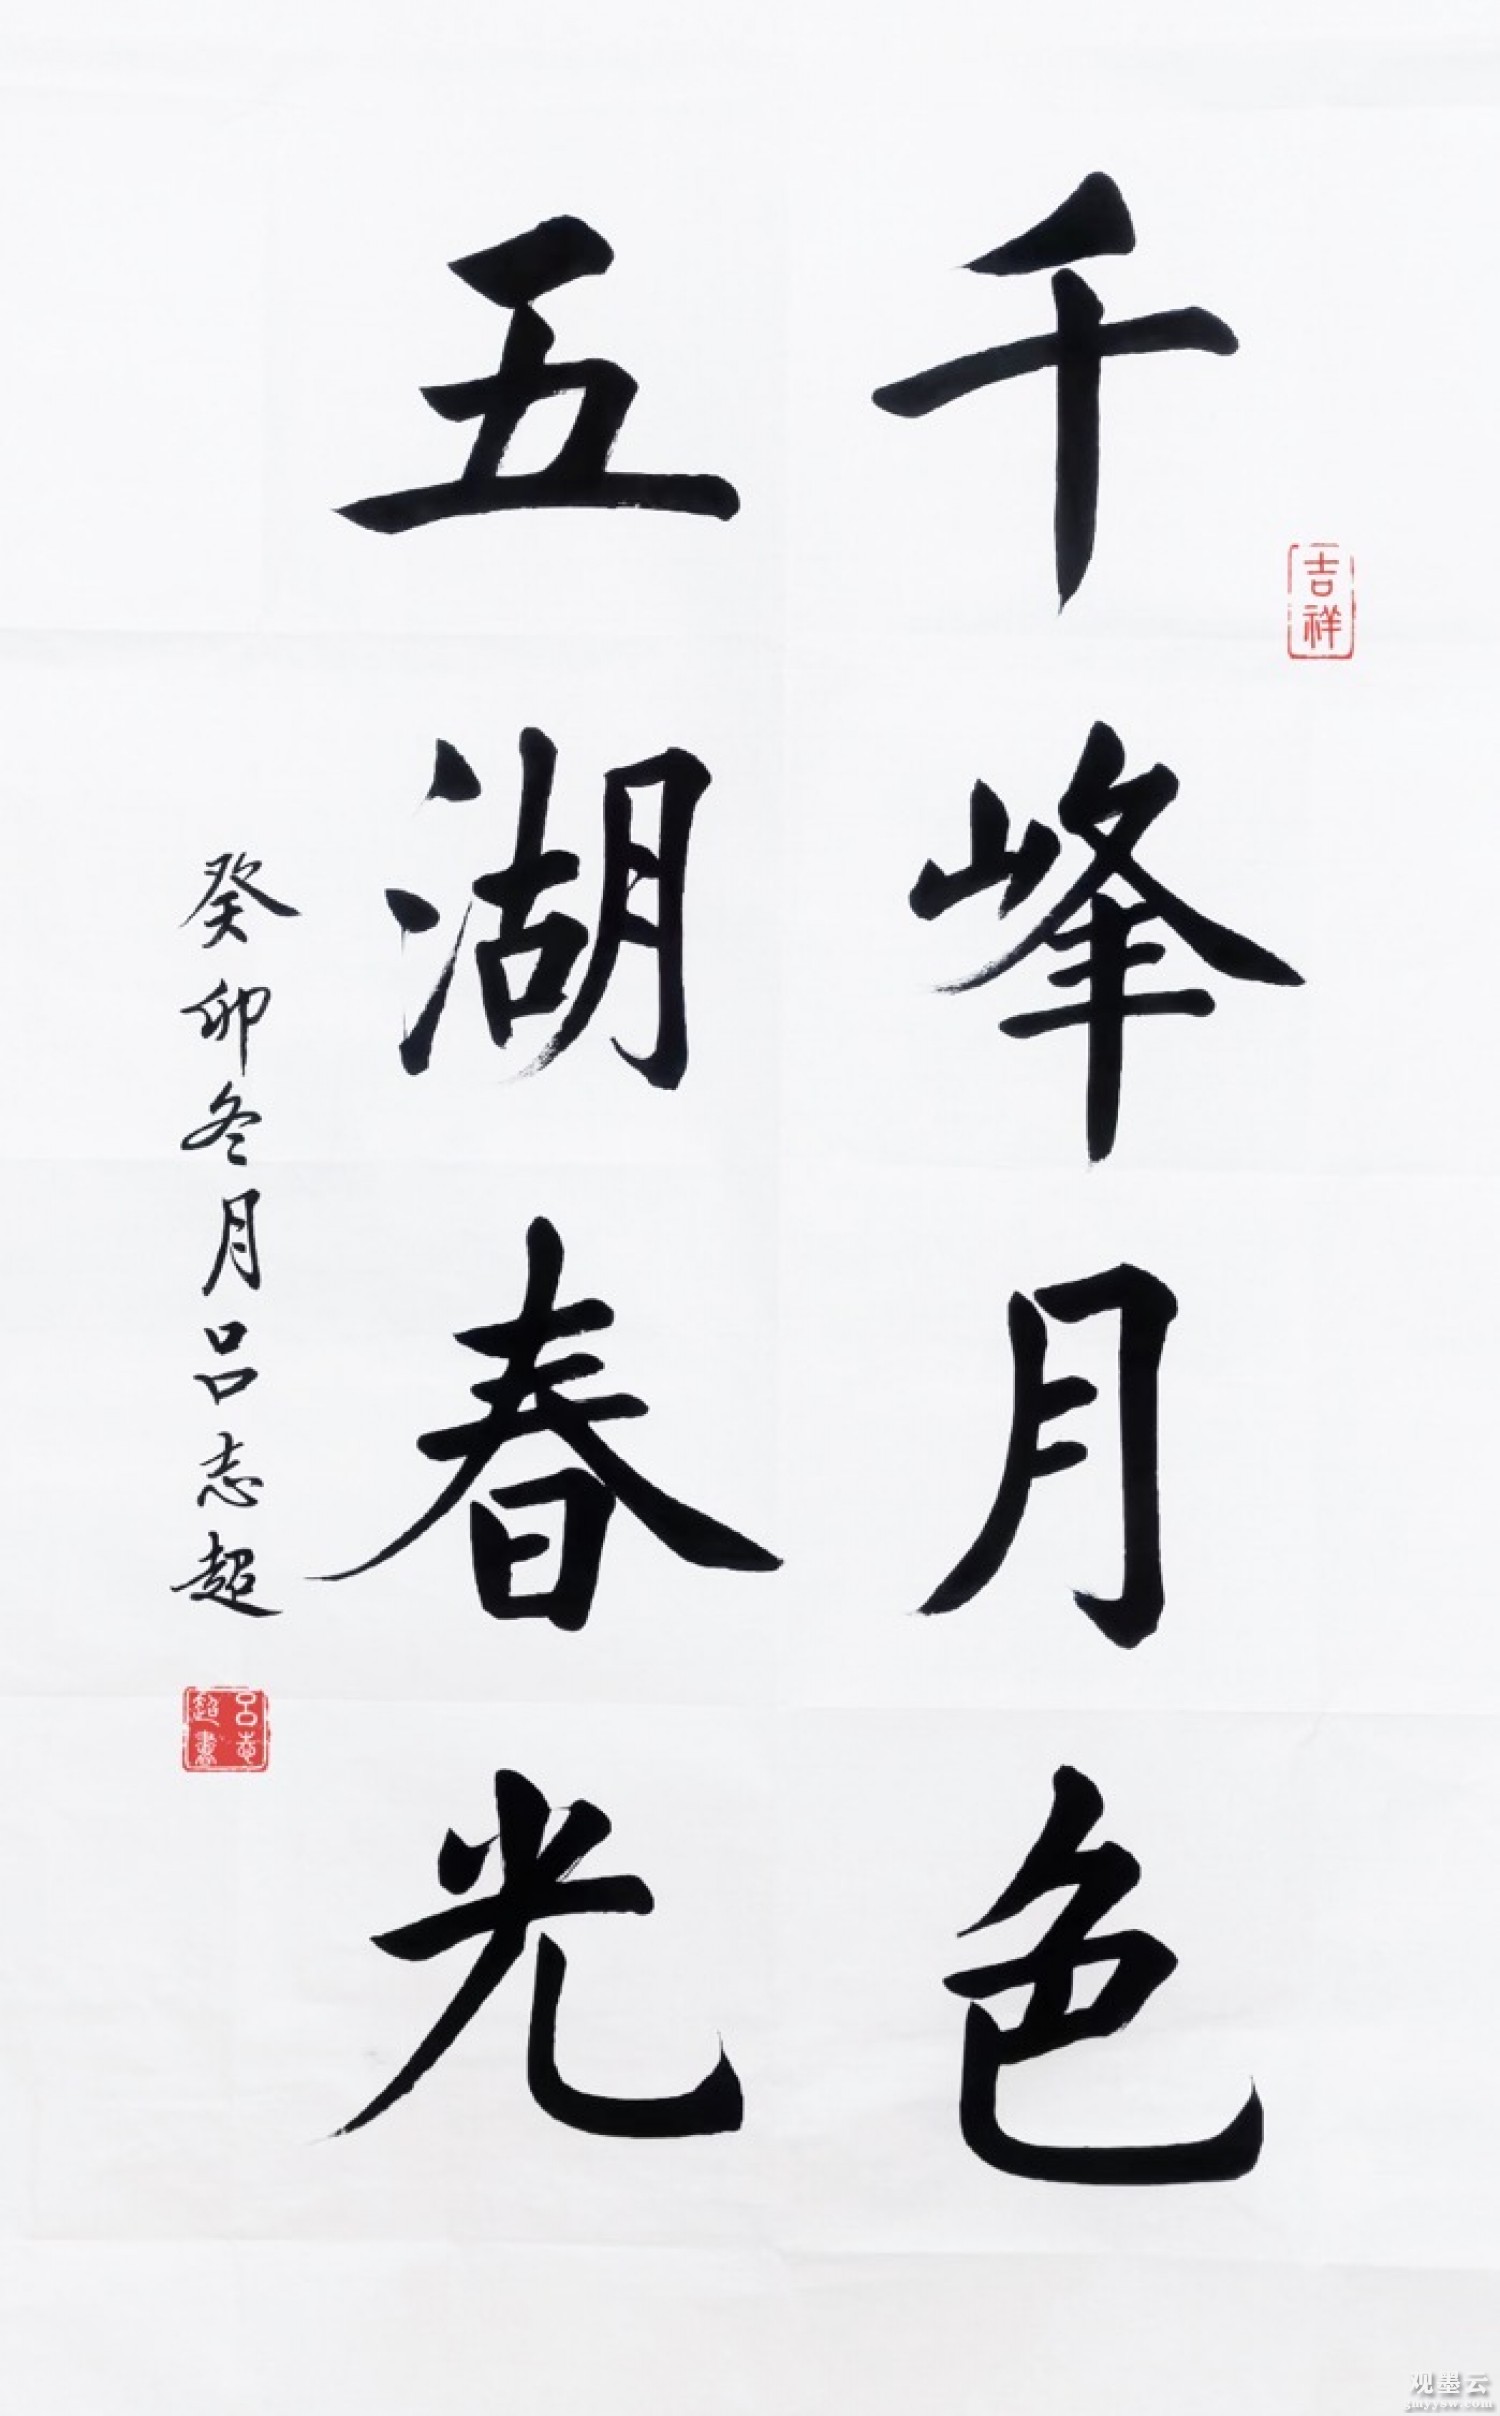 千峰月色
吉祥
五湖春光
癸卯冬月吕志超
吕志超书
观墨云
gmyysw.com